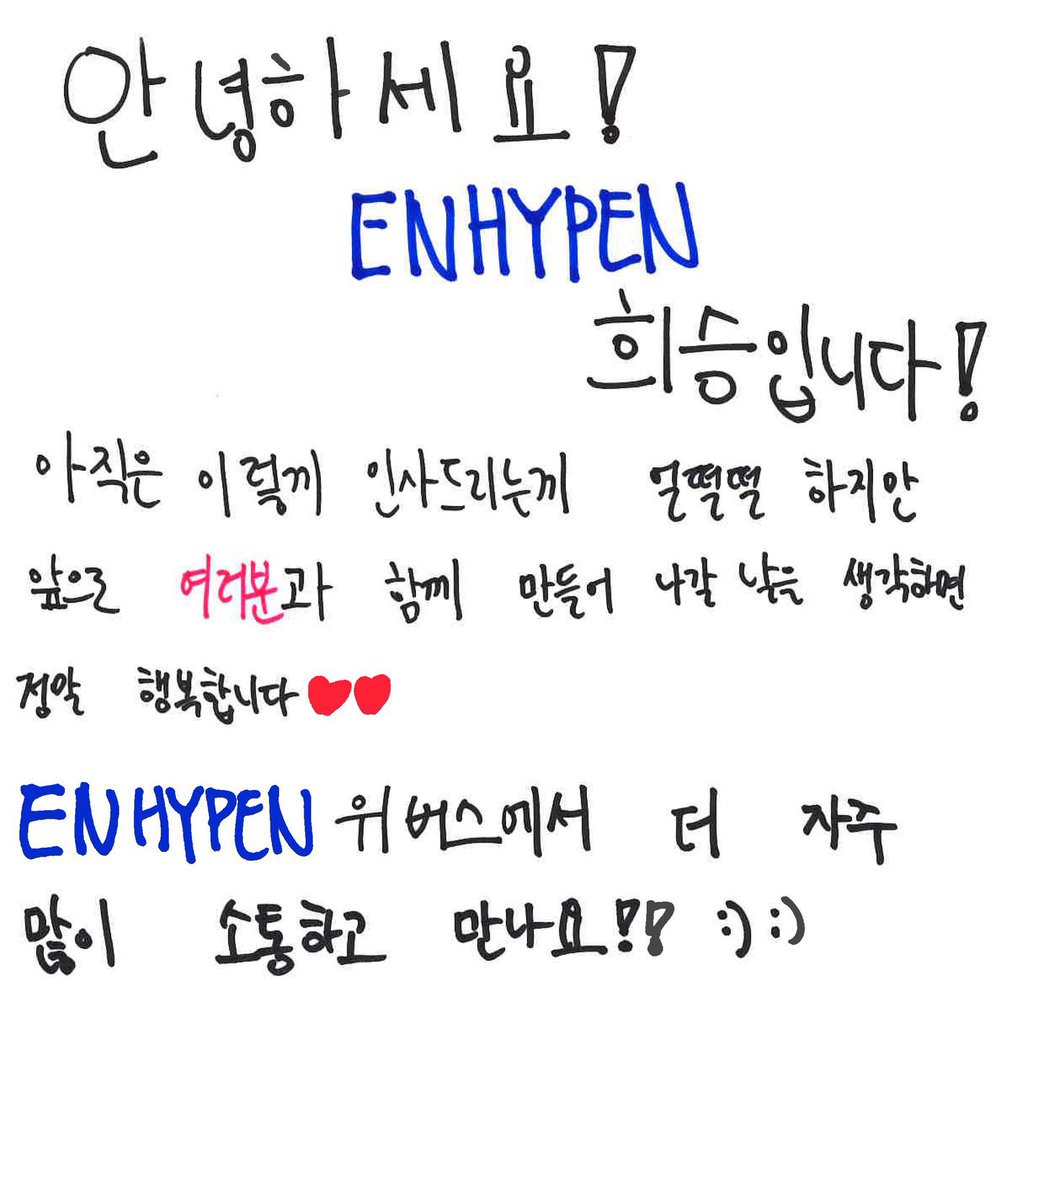 안녕하세요!
ENHYPEN
희승입니다!
아직은 이렇게 인사드리는게 얼떨떨 하지만
앞으로 여러분과 함께 만들어 나갈 날을 생각하면
정말 행복합니다♥♥
ENHYPEN 위버스에서 더 자주
많이 소통하고 만나요!! :) :)